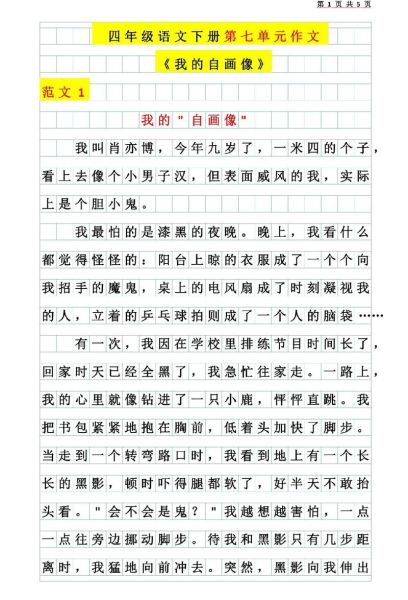 第 1 页 共 5 页
四年级语文下册第七单元作文
《我的自画像》
范文 1
我的"自画像"
我叫肖亦博，今年九岁了，一米四的个子，
看上去像个小男子汉，但表面威风的我，实际
上是个胆小鬼。
我最怕的是漆黑的夜晚。晚上，我看什么
都觉得怪怪的：阳台上晾的衣服成了一个个向
我招手的魔鬼，桌上的电风扇成了时刻凝视我
的人，立着的乒乓球拍则成了一个人的脑袋……
有一次，我因在学校里排练节目时间长了，
回家时天已经全黑了，我急忙往家走。一路上，
我的心里就像钻进了一只小鹿，怦怦直跳。我
把书包紧紧地抱在胸前，低着头加快了脚步。
当走到一个转弯路口时，我看到地上有一个长
长的黑影，顿时吓得腿都软了，好半天不敢抬
头看。"会不会是鬼？"我越想越害怕，一点
一点往旁边挪动脚步。待我和黑影只有几步距
离时，我猛地向前冲去。突然，黑影向我伸出